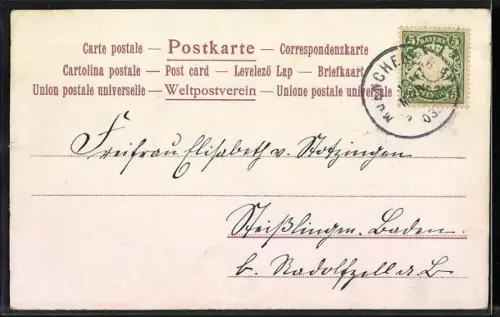 Carte postale — Postkarte — Correspondenzkarte
Cartolina postale — Post card — Levelező Lap — Briefkaart
Union postale universelle — Weltpostverein — Unione postale universale
5 BAYERN 5
MUENCHEN
03
Freifrau Elisabeth v. Stotzingen
Steißlingen. Baden.
b. Radolfzell